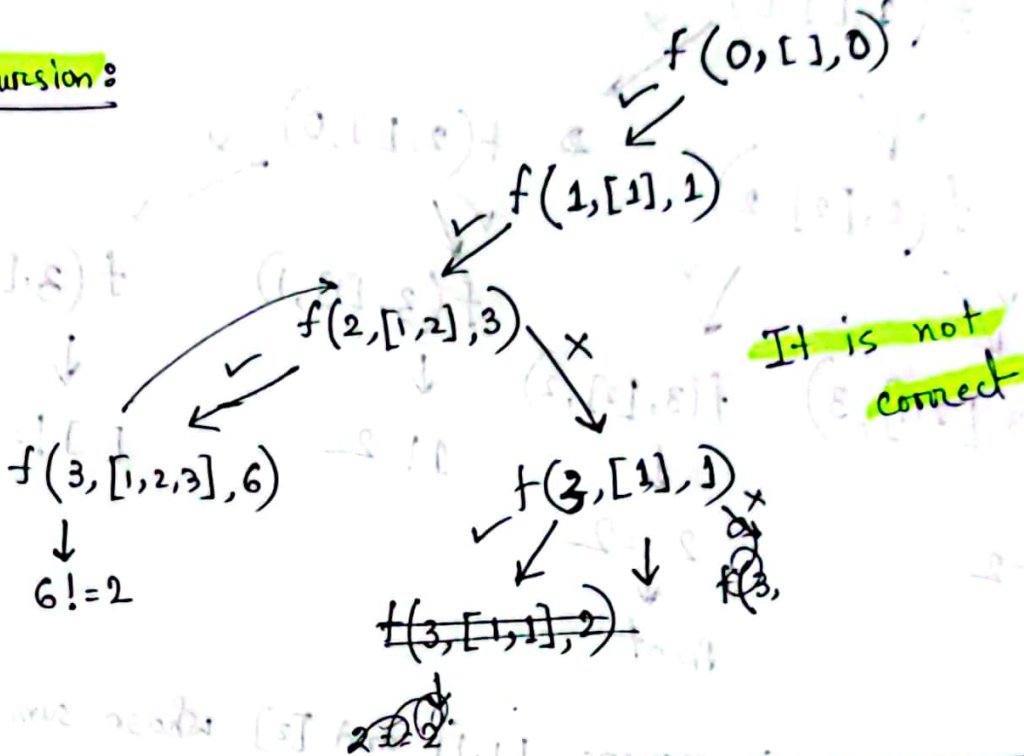 ursion:
f(0,[ ],0)
✓
f(1,[1],1)
✓
f(2,[1,2],3)
✓ ×
It is not
correct
f(3,[1,2,3],6)
f(3,[1],1)
×
✓
6!=2
f(3,
f(3,[1,1],2)